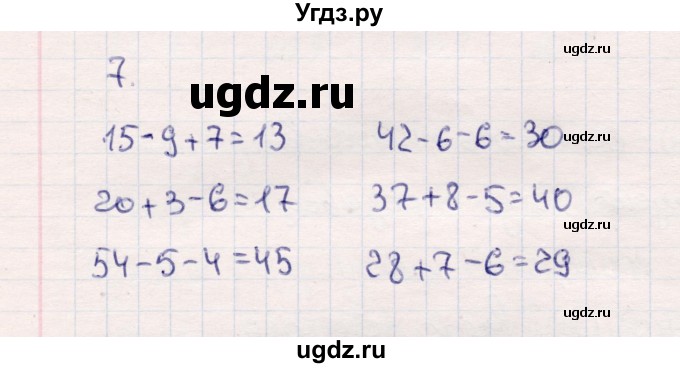 Угдз.ру
ugdz.ru
7.
ugdz.ru
15-9+7=13 42-6-6=30
ugdz.ru
20+3-6=17 37+8-5=40
ugdz.ru
54-5-4=45 28+7-6=29
ugdz.ru
ugdz.ru